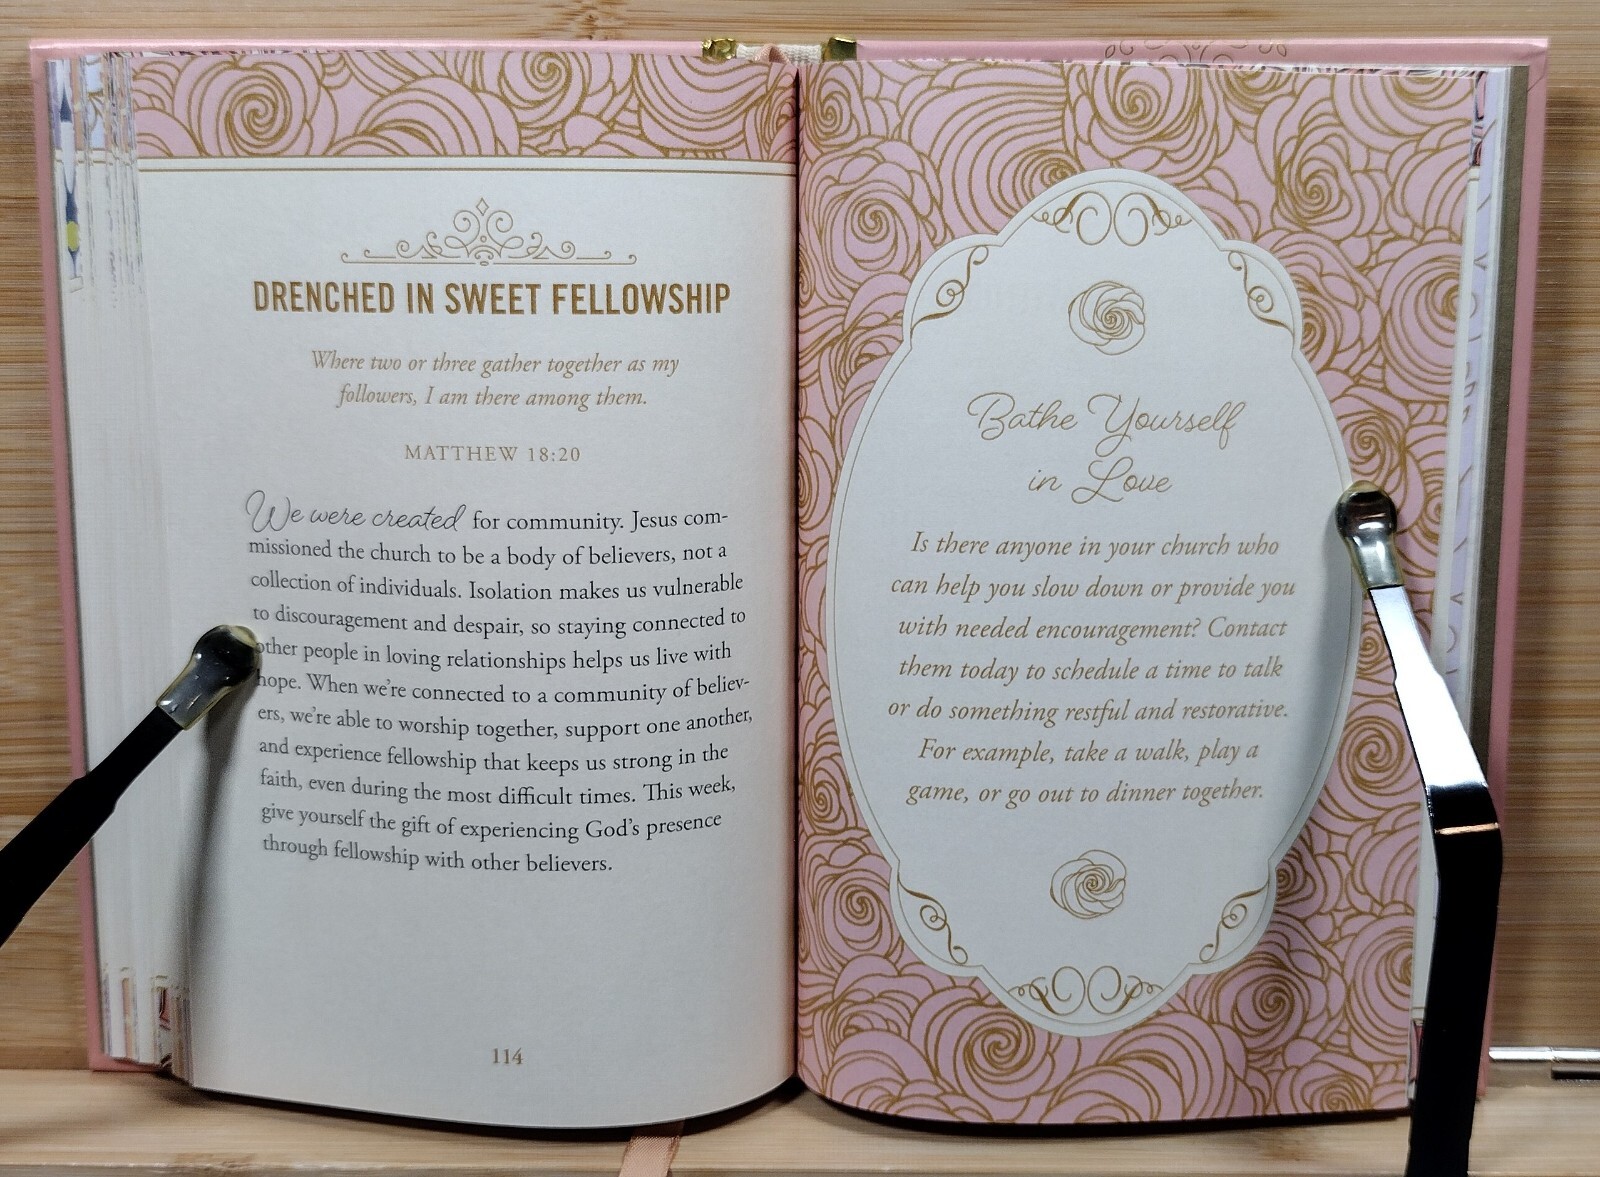 DRENCHED IN SWEET FELLOWSHIP
Where two or three gather together as my
followers, I am there among them.
MATTHEW 18:20
We were created for community. Jesus com-
missioned the church to be a body of believers, not a
collection of individuals. Isolation makes us vulnerable
to discouragement and despair, so staying connected to
other people in loving relationships helps us live with
hope. When we're connected to a community of believ-
ers, we're able to worship together, support one another,
and experience fellowship that keeps us strong in the
faith, even during the most difficult times. This week,
give yourself the gift of experiencing God's presence
through fellowship with other believers.
114
Bathe Yourself
in Love
Is there anyone in your church who
can help you slow down or provide you
with needed encouragement? Contact
them today to schedule a time to talk
or do something restful and restorative.
For example, take a walk, play a
game, or go out to dinner together.